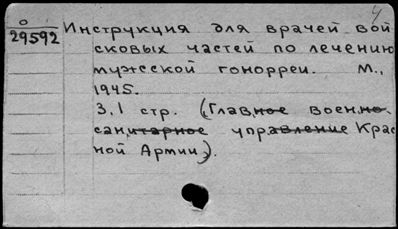 4
0
29592 Инструкция для врачей вой
сковых частей по лечению
мужской гонорреи. М.,
1945.
3,1 стр. (Главное военно-
санитарное управление Крас
ной Армии).